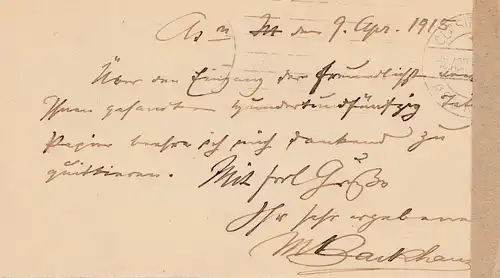 den 9. Apr. 1915
Über den Eingang der freundlichst von
Ihnen gesandten hundertundfünfzig
Papier beehre ich mich dankend zu
quittieren. Mit frdl Gruße
Ihr sehr ergebener